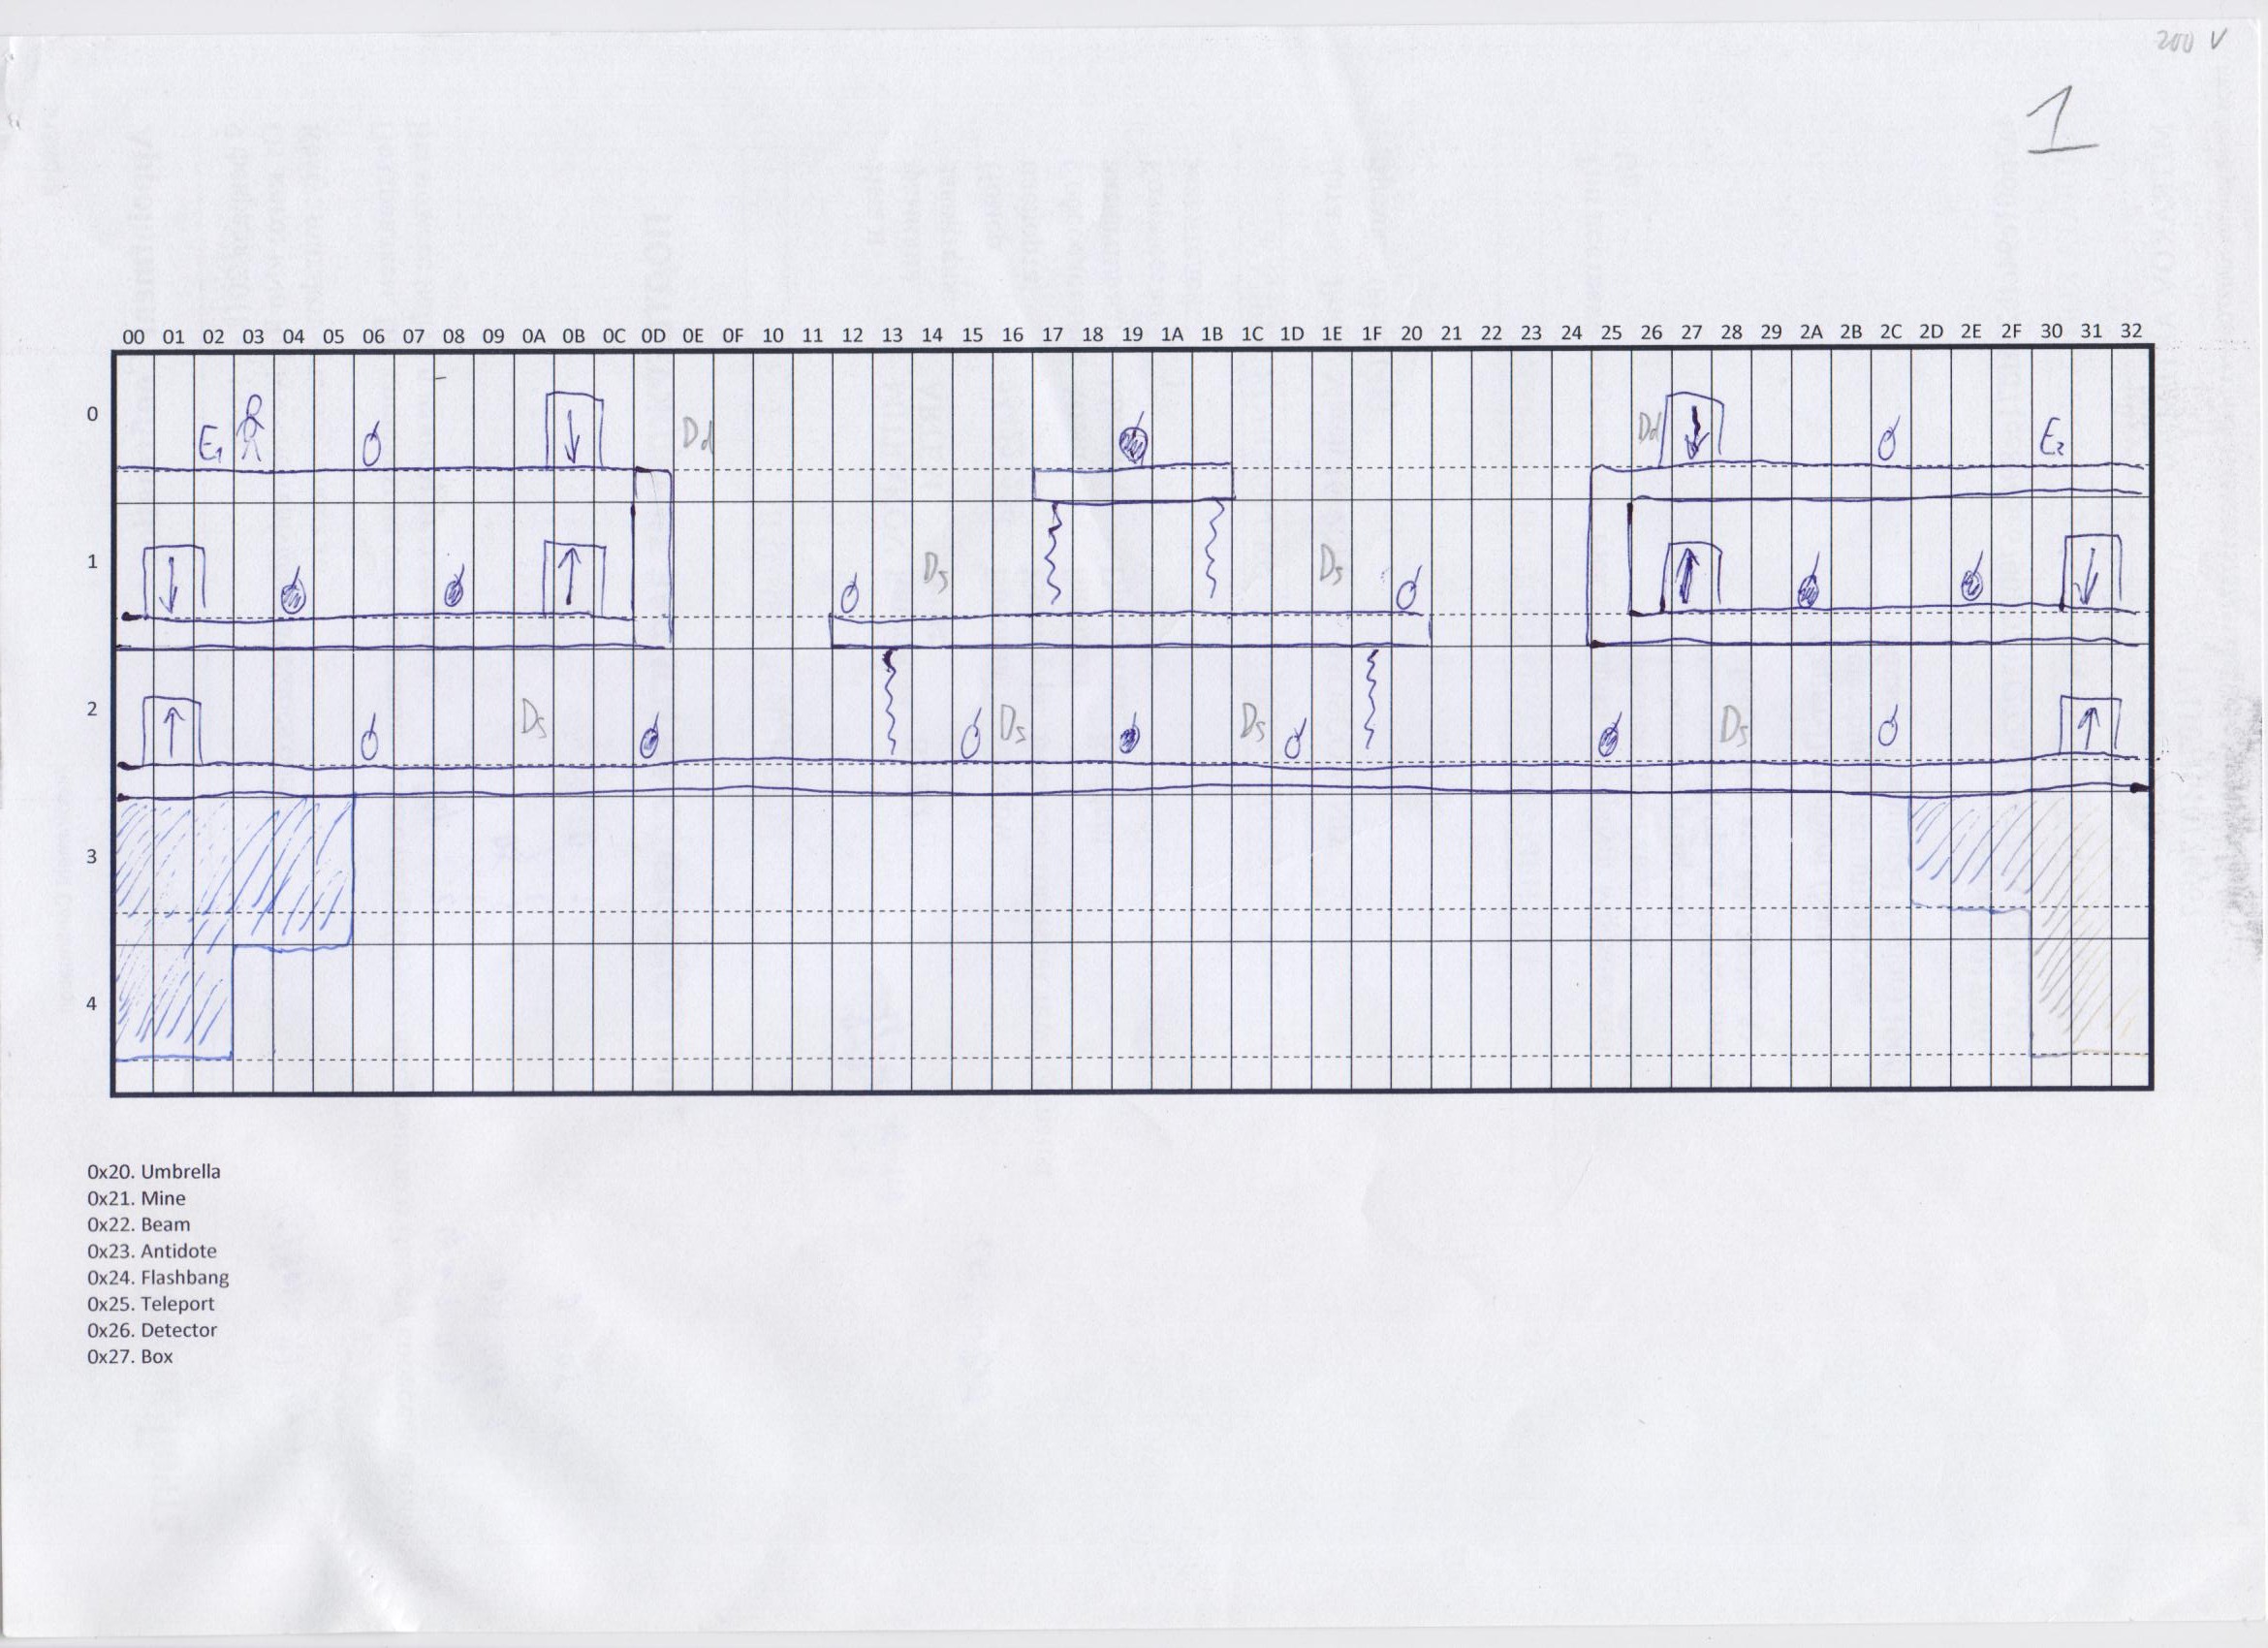 200 V
1
00 01 02 03 04 05 06 07 08 09 0A 0B 0C 0D 0E 0F 10 11 12 13 14 15 16 17 18 19 1A 1B 1C 1D 1E 1F 20 21 22 23 24 25 26 27 28 29 2A 2B 2C 2D 2E 2F 30 31 32
0 E1 Dd Dd E2
1 Ds Ds
2 Ds Ds Ds Ds
3
4
0x20. Umbrella
0x21. Mine
0x22. Beam
0x23. Antidote
0x24. Flashbang
0x25. Teleport
0x26. Detector
0x27. Box